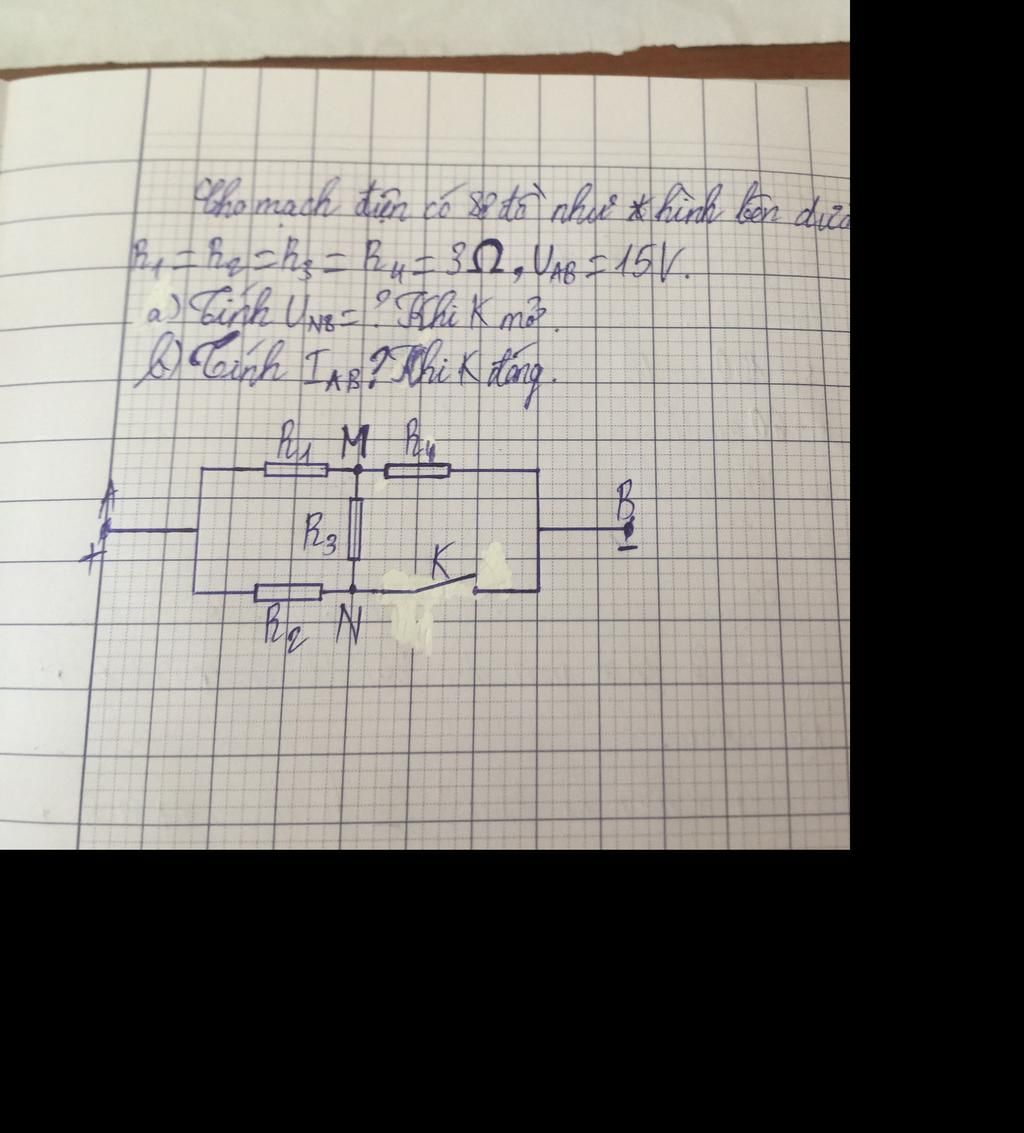 Cho mạch điện có sơ đồ như hình bên dưới
R1 = R2 = R3 = R4 = 3Ω, UAB = 15V.
a) Tính UNB = ? Khi K mở.
b) Tính IAB ? Khi K đóng.
R1 M R4
A B
R3
+ K −
R2 N